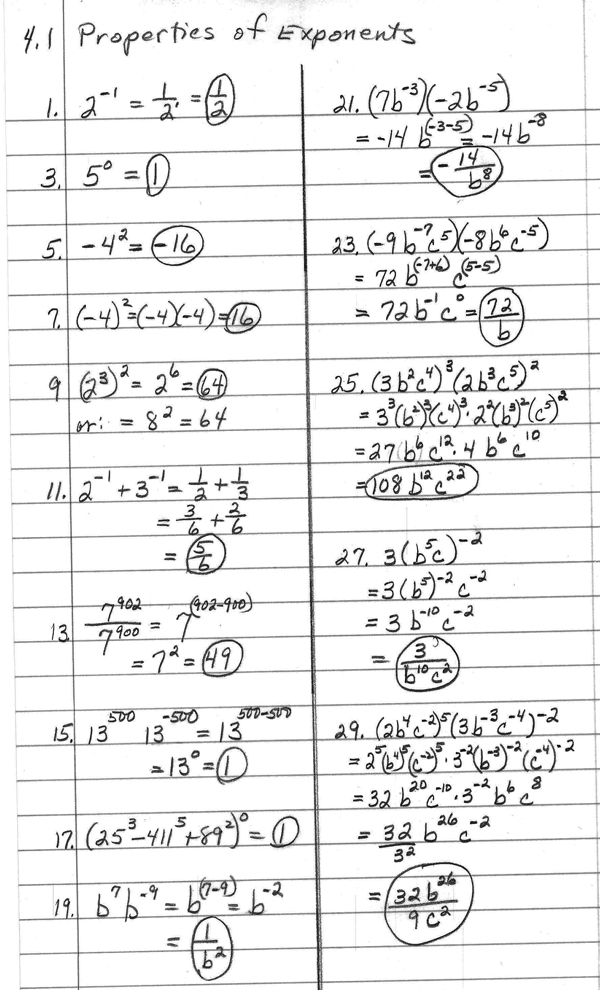 4.1 Properties of Exponents
1. 2⁻¹ = 1/2¹ = 1/2
3. 5⁰ = 1
5. -4² = -16
7. (-4)² = (-4)(-4) = 16
9 (2³)² = 2⁶ = 64
or: = 8² = 64
11. 2⁻¹ + 3⁻¹ = 1/2 + 1/3
= 3/6 + 2/6
= 5/6
13 7⁹⁰²/7⁹⁰⁰ = 7⁽⁹⁰²⁻⁹⁰⁰⁾
= 7² = 49
15. 13⁵⁰⁰ 13⁻⁵⁰⁰ = 13⁵⁰⁰⁻⁵⁰⁰
= 13⁰ = 1
17. (25³ - 411⁵ + 89²)⁰ = 1
19. b⁷b⁻⁹ = b⁽⁷⁻⁹⁾ = b⁻²
= 1/b²
21. (7b⁻³)(-2b⁻⁵)
= -14 b⁽⁻³⁻⁵⁾ = -14b⁻⁸
= -14/b⁸
23. (-9b⁻⁷c⁵)(-8b⁶c⁻⁵)
= 72 b⁽⁻⁷⁺⁶⁾ c⁽⁵⁻⁵⁾
= 72b⁻¹c⁰ = 72/b
25. (3b²c⁴)³(2b³c⁵)²
= 3³(b²)³(c⁴)³·2²(b³)²(c⁵)²
= 27 b⁶ c¹²·4 b⁶ c¹⁰
= 108 b¹² c²²
27. 3(b⁵c)⁻²
= 3(b⁵)⁻² c⁻²
= 3 b⁻¹⁰ c⁻²
= 3/b¹⁰c²
29. (2b⁴c⁻²)⁵(3b⁻³c⁻⁴)⁻²
= 2⁵(b⁴)⁵(c⁻²)⁵·3⁻²(b⁻³)⁻²(c⁻⁴)⁻²
= 32 b²⁰ c⁻¹⁰·3⁻² b⁶ c⁸
= 32/3² b²⁶ c⁻²
= 32b²⁶/9c²